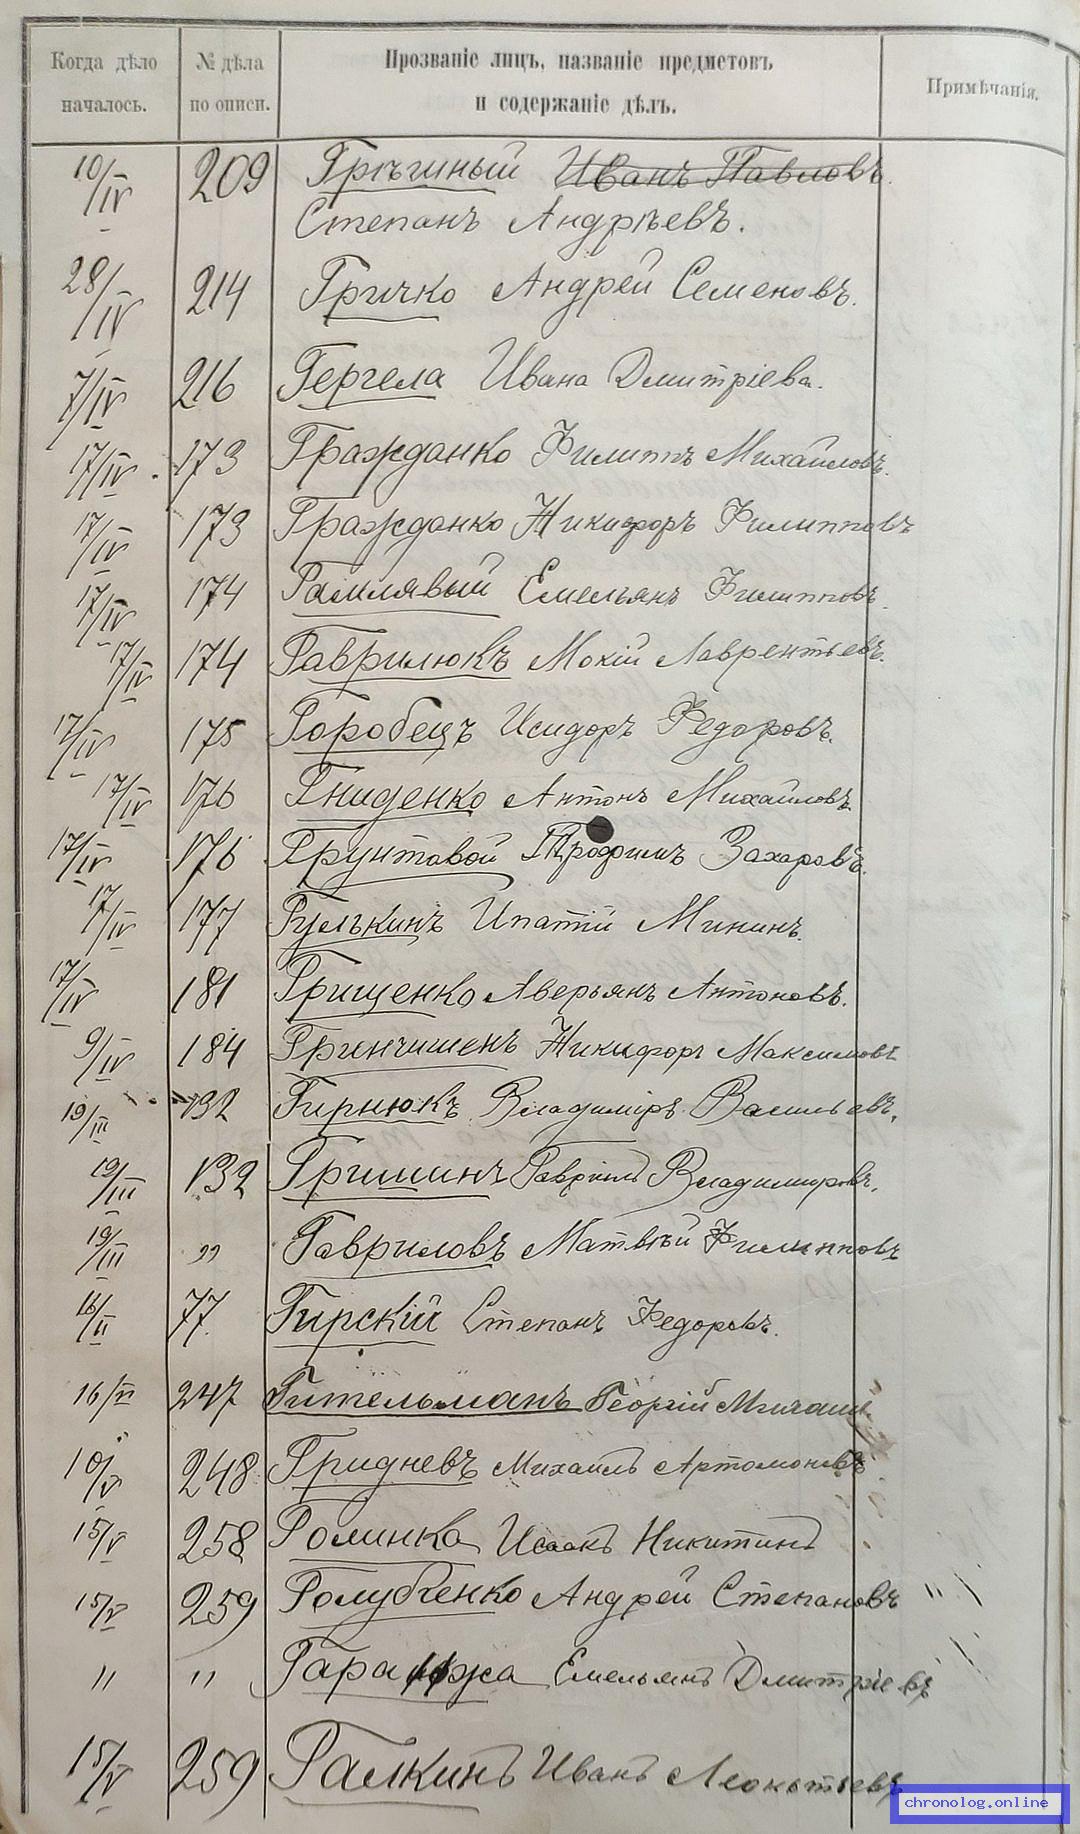 Когда дѣло началось. № дѣла по описи. Прозваніе лицъ, названіе предметовъ и содержаніе дѣлъ. Примѣчанія.
10/IV 209 Грѣшный Иванъ Павловъ.
Степанъ Андрѣевъ.
28/IV 214 Гричко Андрей Семеновъ.
7/IV 216 Гергела Ивана Дмитріева.
17/IV. 173 Гражданко Филиппъ Михайловъ.
17/IV 173 Гражданко Никифоръ Филипповъ
17/IV 174 Гамлявый Емельянъ Филипповъ.
17/IV 174 Гаврилюкъ Мокій Лаврентьевъ.
17/IV 175 Горобецъ Исидоръ Федоровъ.
17/IV 176 Гниденко Антонъ Михайловъ.
17/IV 176 Грунтовой Трофимъ Захаровъ.
17/IV 177 Гулькинъ Ипатій Мининъ.
17/IV 181 Грищенко Аверьянъ Антоновъ.
9/IV 184 Гринчишенъ Никифоръ Максимовъ
19/III 132 Гирнюкъ Владиміръ Васильевъ.
19/III 132 Гришинъ Гавріилъ Владимировъ.
19/III „ Гавриловъ Матвѣй Филипповъ
16/II 77. Гирскій Степанъ Федоровъ.
16/VI 247 Гительманъ Георгій
10/V 248 Гридневъ Михаилъ Артомоновъ
15/V 258 Гоминка Исаакъ Никитинъ
15/V 259 Голубченко Андрей Степановъ "
" " Гаранжа Емельянъ Дмитріевъ
15/V 259 Галкинъ Иванъ Леонтьевъ
chronolog.online